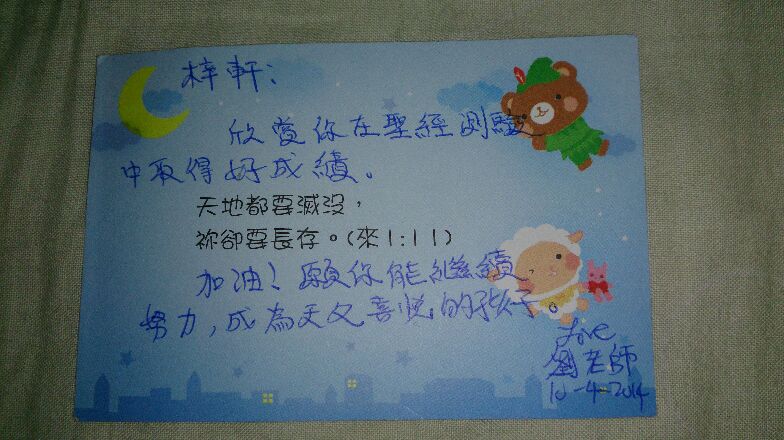 梓軒：
欣賞你在聖經測驗
中取得好成績。
天地都要滅沒，
祢卻要長存。(來1:11)
加油！願你能繼續
努力，成為天父喜悅的孩子。
Love
劉老師
10-4-2014